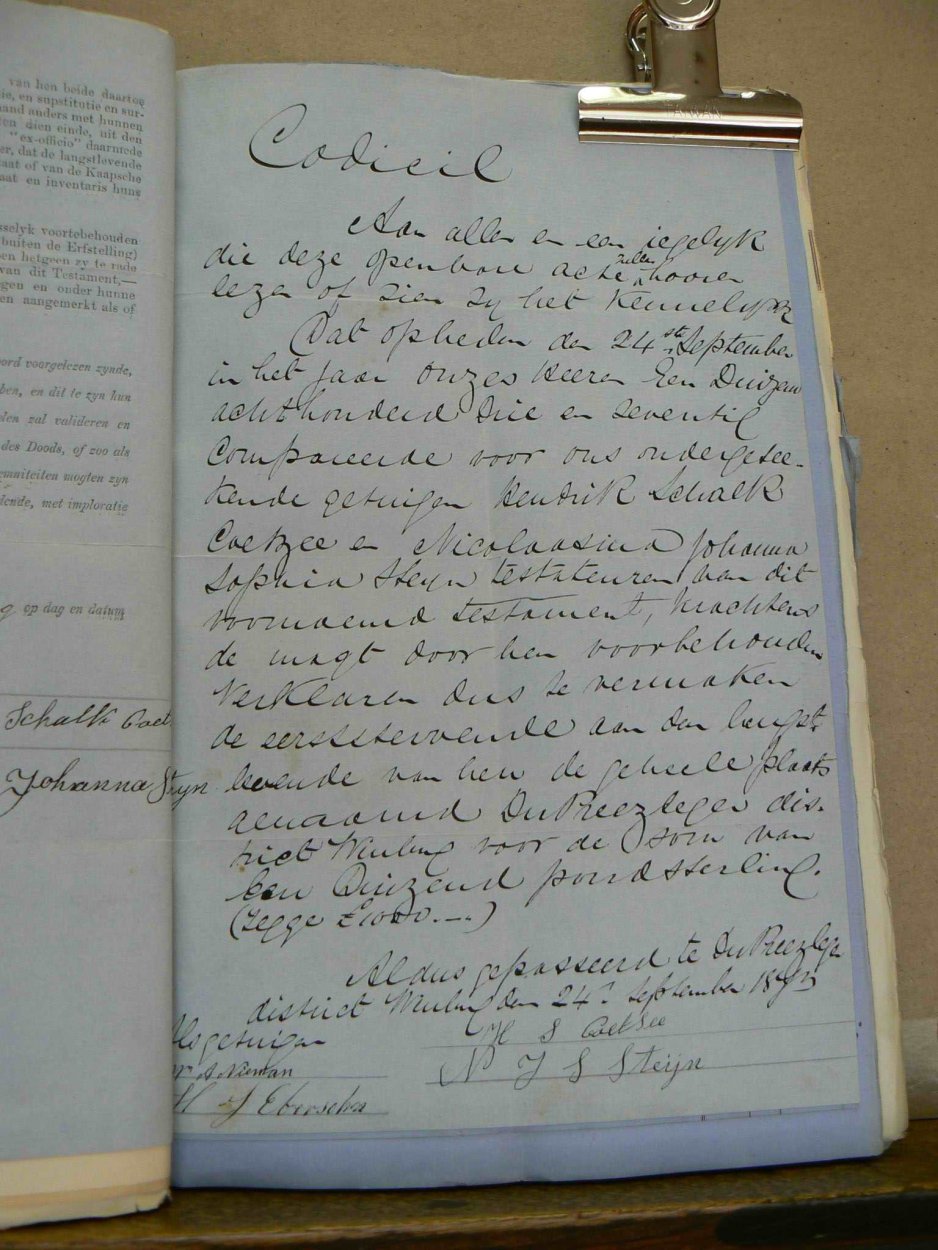 van hen beide daartoe
ie, en supstitutie en sur-
mand anders met hunnen
ten dien einde, uit den
"ex-officio" daarmede
er, dat de langstlevende
taat of van de Kaapsche
aat en inventaris huns
sselyk voortebehouden
(buiten de Erfstelling)
en hetgeen zy te rade
van dit Testament,—
gen en onder hunne
en aangemerkt als of
oord voorgelezen zynde,
ben, en dit te zyn hun
elen zal valideren en
des Doods, of zoo als
emniteiten mogten zyn
dende, met imploratie
op dag en datum
Schalk Coet
Johanna Steyn
TAIWAN
Codicil
Aan allen en een iegelyk
die deze openbare acte zullen hooren
lezen of zien zy het kennelyk
Dat opheden den 24ste September
in het jaar onzes Heeren Een Duizend
achthonderd drie en zeventig
Compareerde voor ons ondergetee-
kende getuigen Hendrik Schalk
Coetzee en Nicolaasina Johanna
Sophia Steyn testateuren van dit
voornoemd testament, krachtens
de magt door hen voorbehouden
verklaren dus te vermaken
de eerststervende aan den langst-
levende van hen de geheele plaats
genaamd Du Preezleger dis-
trict Winburg voor de som van
Een Duizend pondssterling.
(zegge £1000.–.–)
Aldus gepasseerd te Du Preezleger
district Winburg den 24 September 1873
Als getuigen
H S Coetsee
N J S Steijn
H J Ebersohn